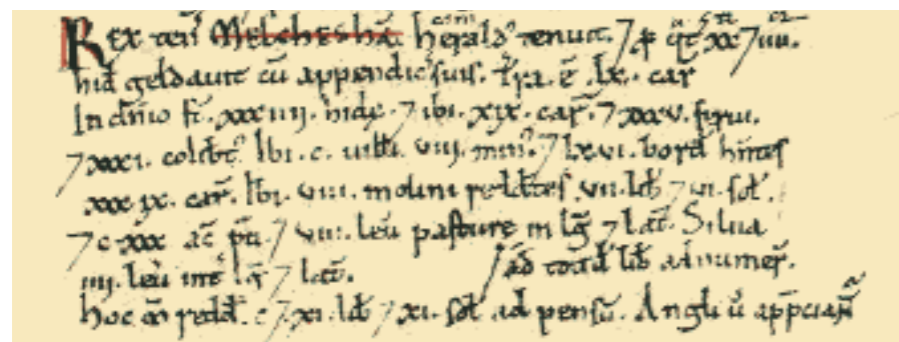 Rex ten&#x27; Melcheshā. herald&#x27; tenuit. ⁊ ꝑ qͣt xx ⁊ iiii.
hid geldauit cū appendic&#x27; suis. Tra. ē. lx. car
In dn̄io st̄. xxxiiii. hidę. ⁊ ibi. xix. car̄. ⁊ xxxv. serui.
⁊ xxxi. colibt&#x27;. Ibi. c. uilli. viii. min&#x27;. ⁊ lxvi. bord hn̄tes
xxxix. car̄. Ibi. viii. molini reddtes. vii. lib ⁊ vi. sol.
⁊ c. xxx ac̄ pti. ⁊ viii. leu pasture in lḡ ⁊ lat̄. Silua
iiii. leu int̄ lḡ ⁊ lat̄.
ad totid lib ad numer̄.
hoc m̄ redd. c ⁊ xi. lib ⁊ xi. sol ad pensū. Angli ū app̄ciant